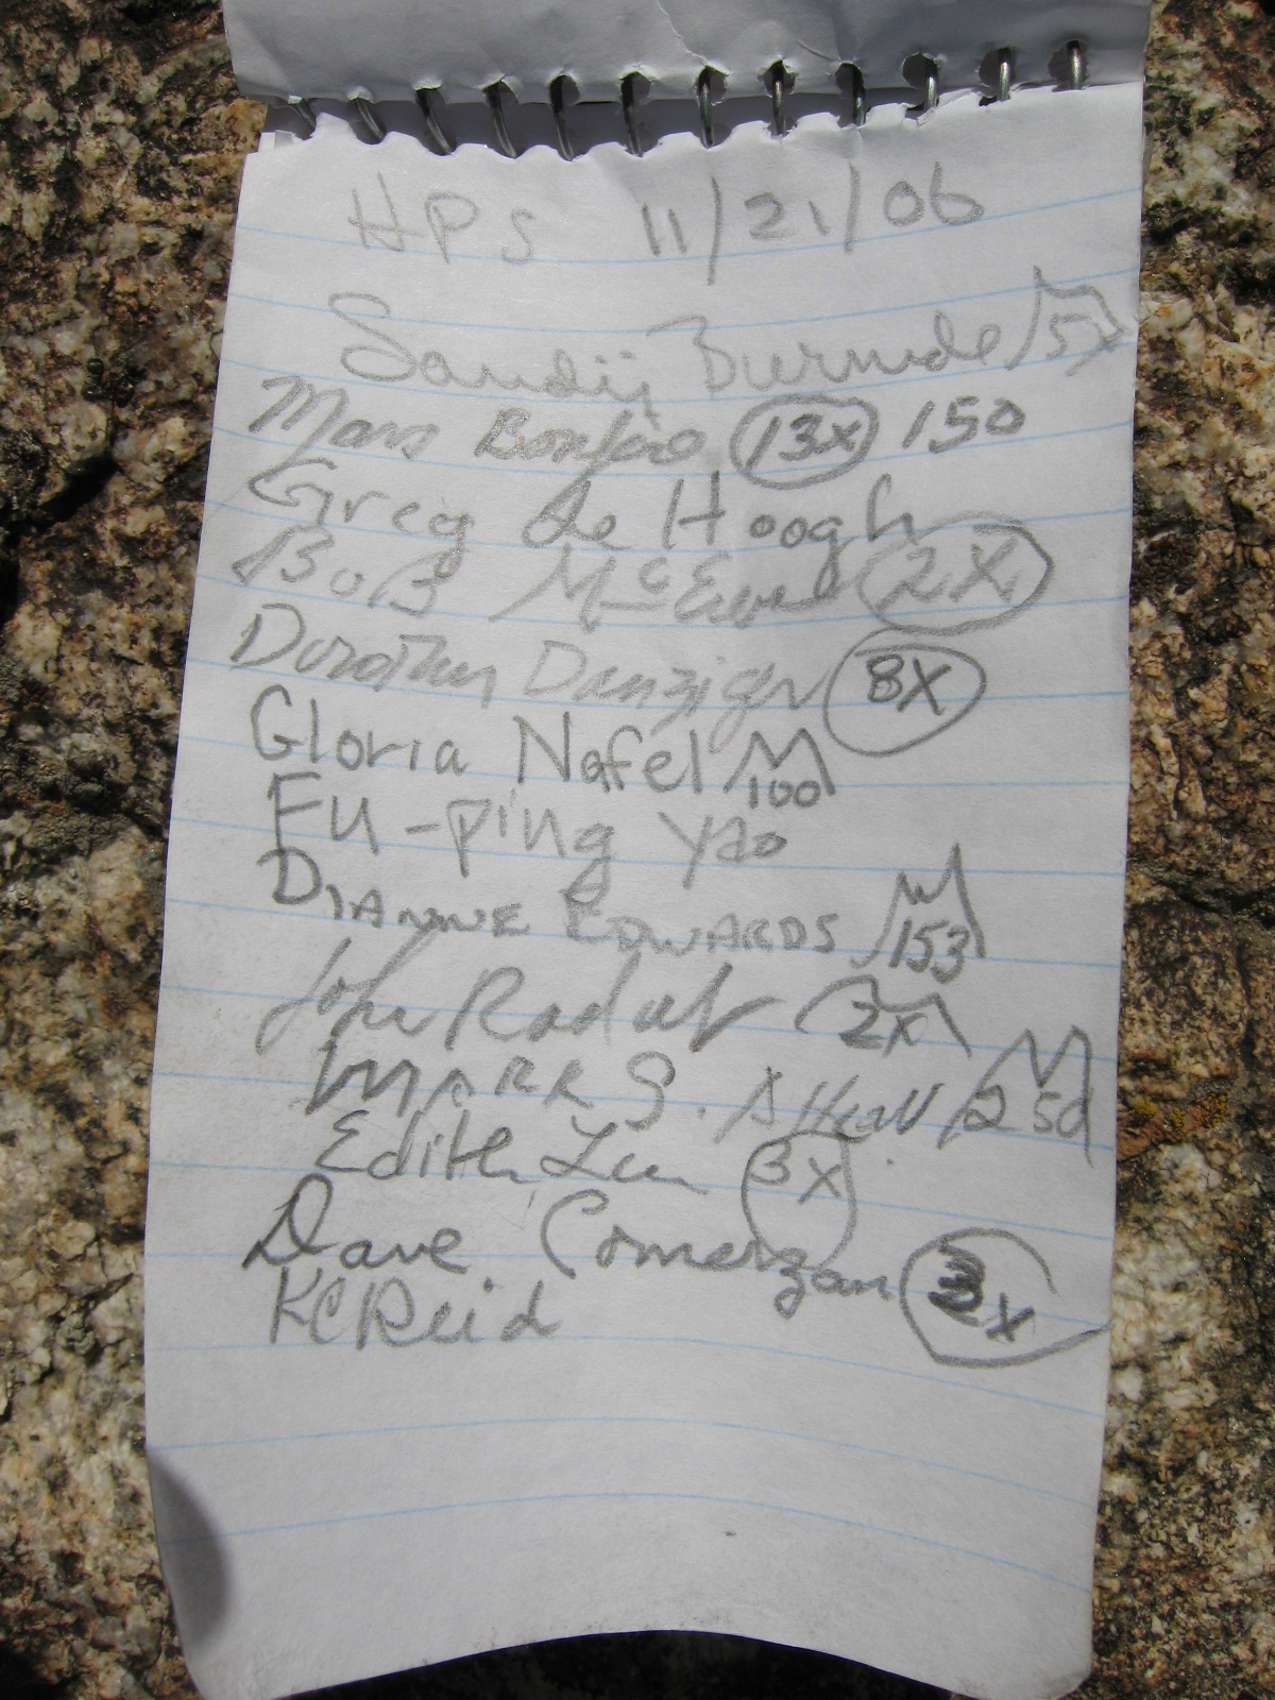 HPS 11/21/06
Sandy 5x
Mars Bonfire 13x 150
Greg de Hoogh
Bob McEwen 2X
Dorothy Danziger 8X
Gloria Nafel M 100
Fu-ping Yao
DIANNE EDWARDS M 153
John Radalj 2x
MARK S. Allen 250
Edith Liu 3X
Dave Comerzan 3x
KC Reid